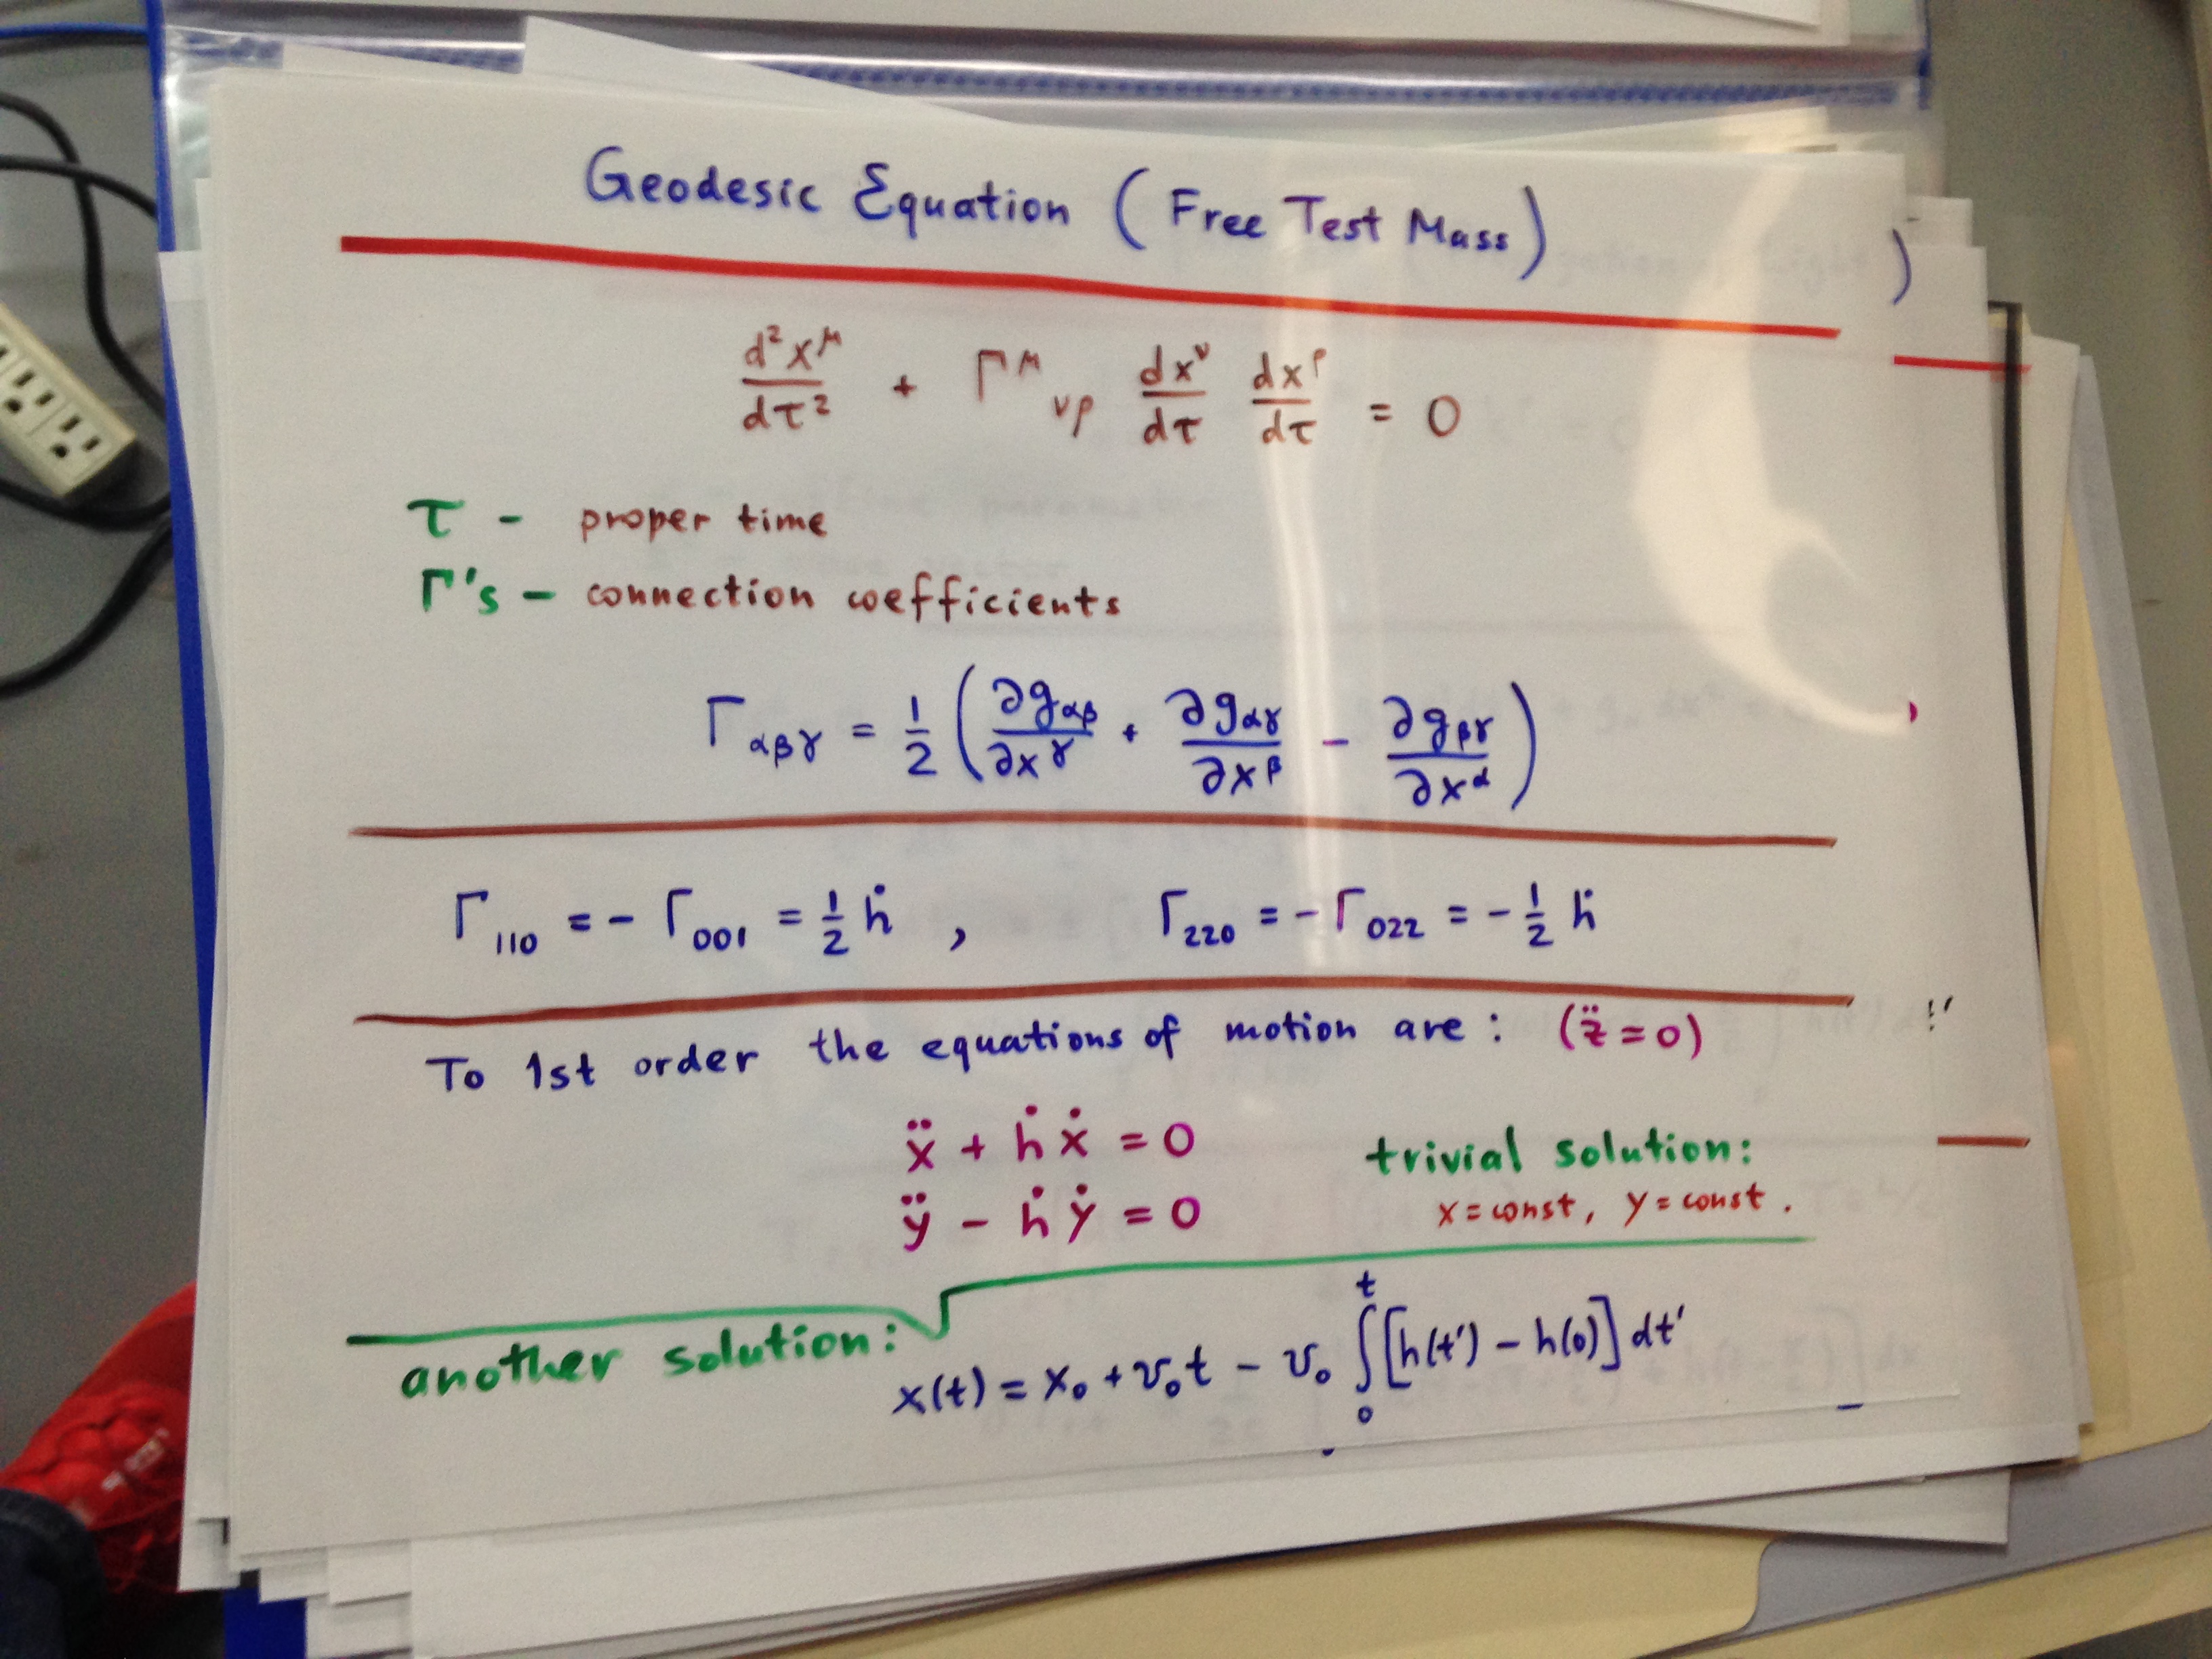 Geodesic Equation (Free Test Mass)
d²x^μ/dτ² + Γ^μ_νρ dx^ν/dτ dx^ρ/dτ = 0
τ - proper time
Γ's - connection coefficients
Γ_αβγ = 1/2 (∂g_αβ/∂x^γ + ∂g_αγ/∂x^β - ∂g_βγ/∂x^α)
Γ_110 = - Γ_001 = 1/2 ḣ , Γ_220 = - Γ_022 = - 1/2 ḣ
To 1st order the equations of motion are: (z̈ = 0)
ẍ + ḣ ẋ = 0
ÿ - ḣ ẏ = 0
trivial solution:
x = const, y = const.
another solution:
x(t) = x₀ + v₀t - v₀ ∫₀^t [h(t') - h(0)] dt'